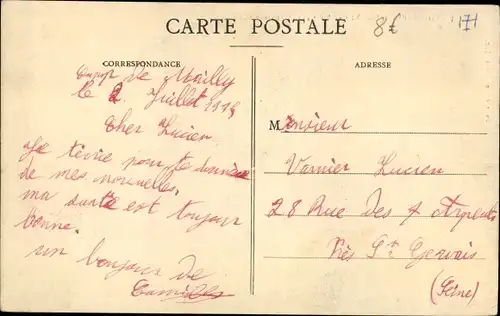 CARTE POSTALE
8€
171
CORRESPONDANCE
ADRESSE
Camp De Mailly
le 2 Juillet
Cher Lucien
Je técrie pour te donnée
de mes nouvelles.
ma santé est toujour
bonne.
un bonjour de
Camille
Monsieur
Varnier Lucien
28 Rue Des 7 Arpents
Près St Gervais
(Seine)